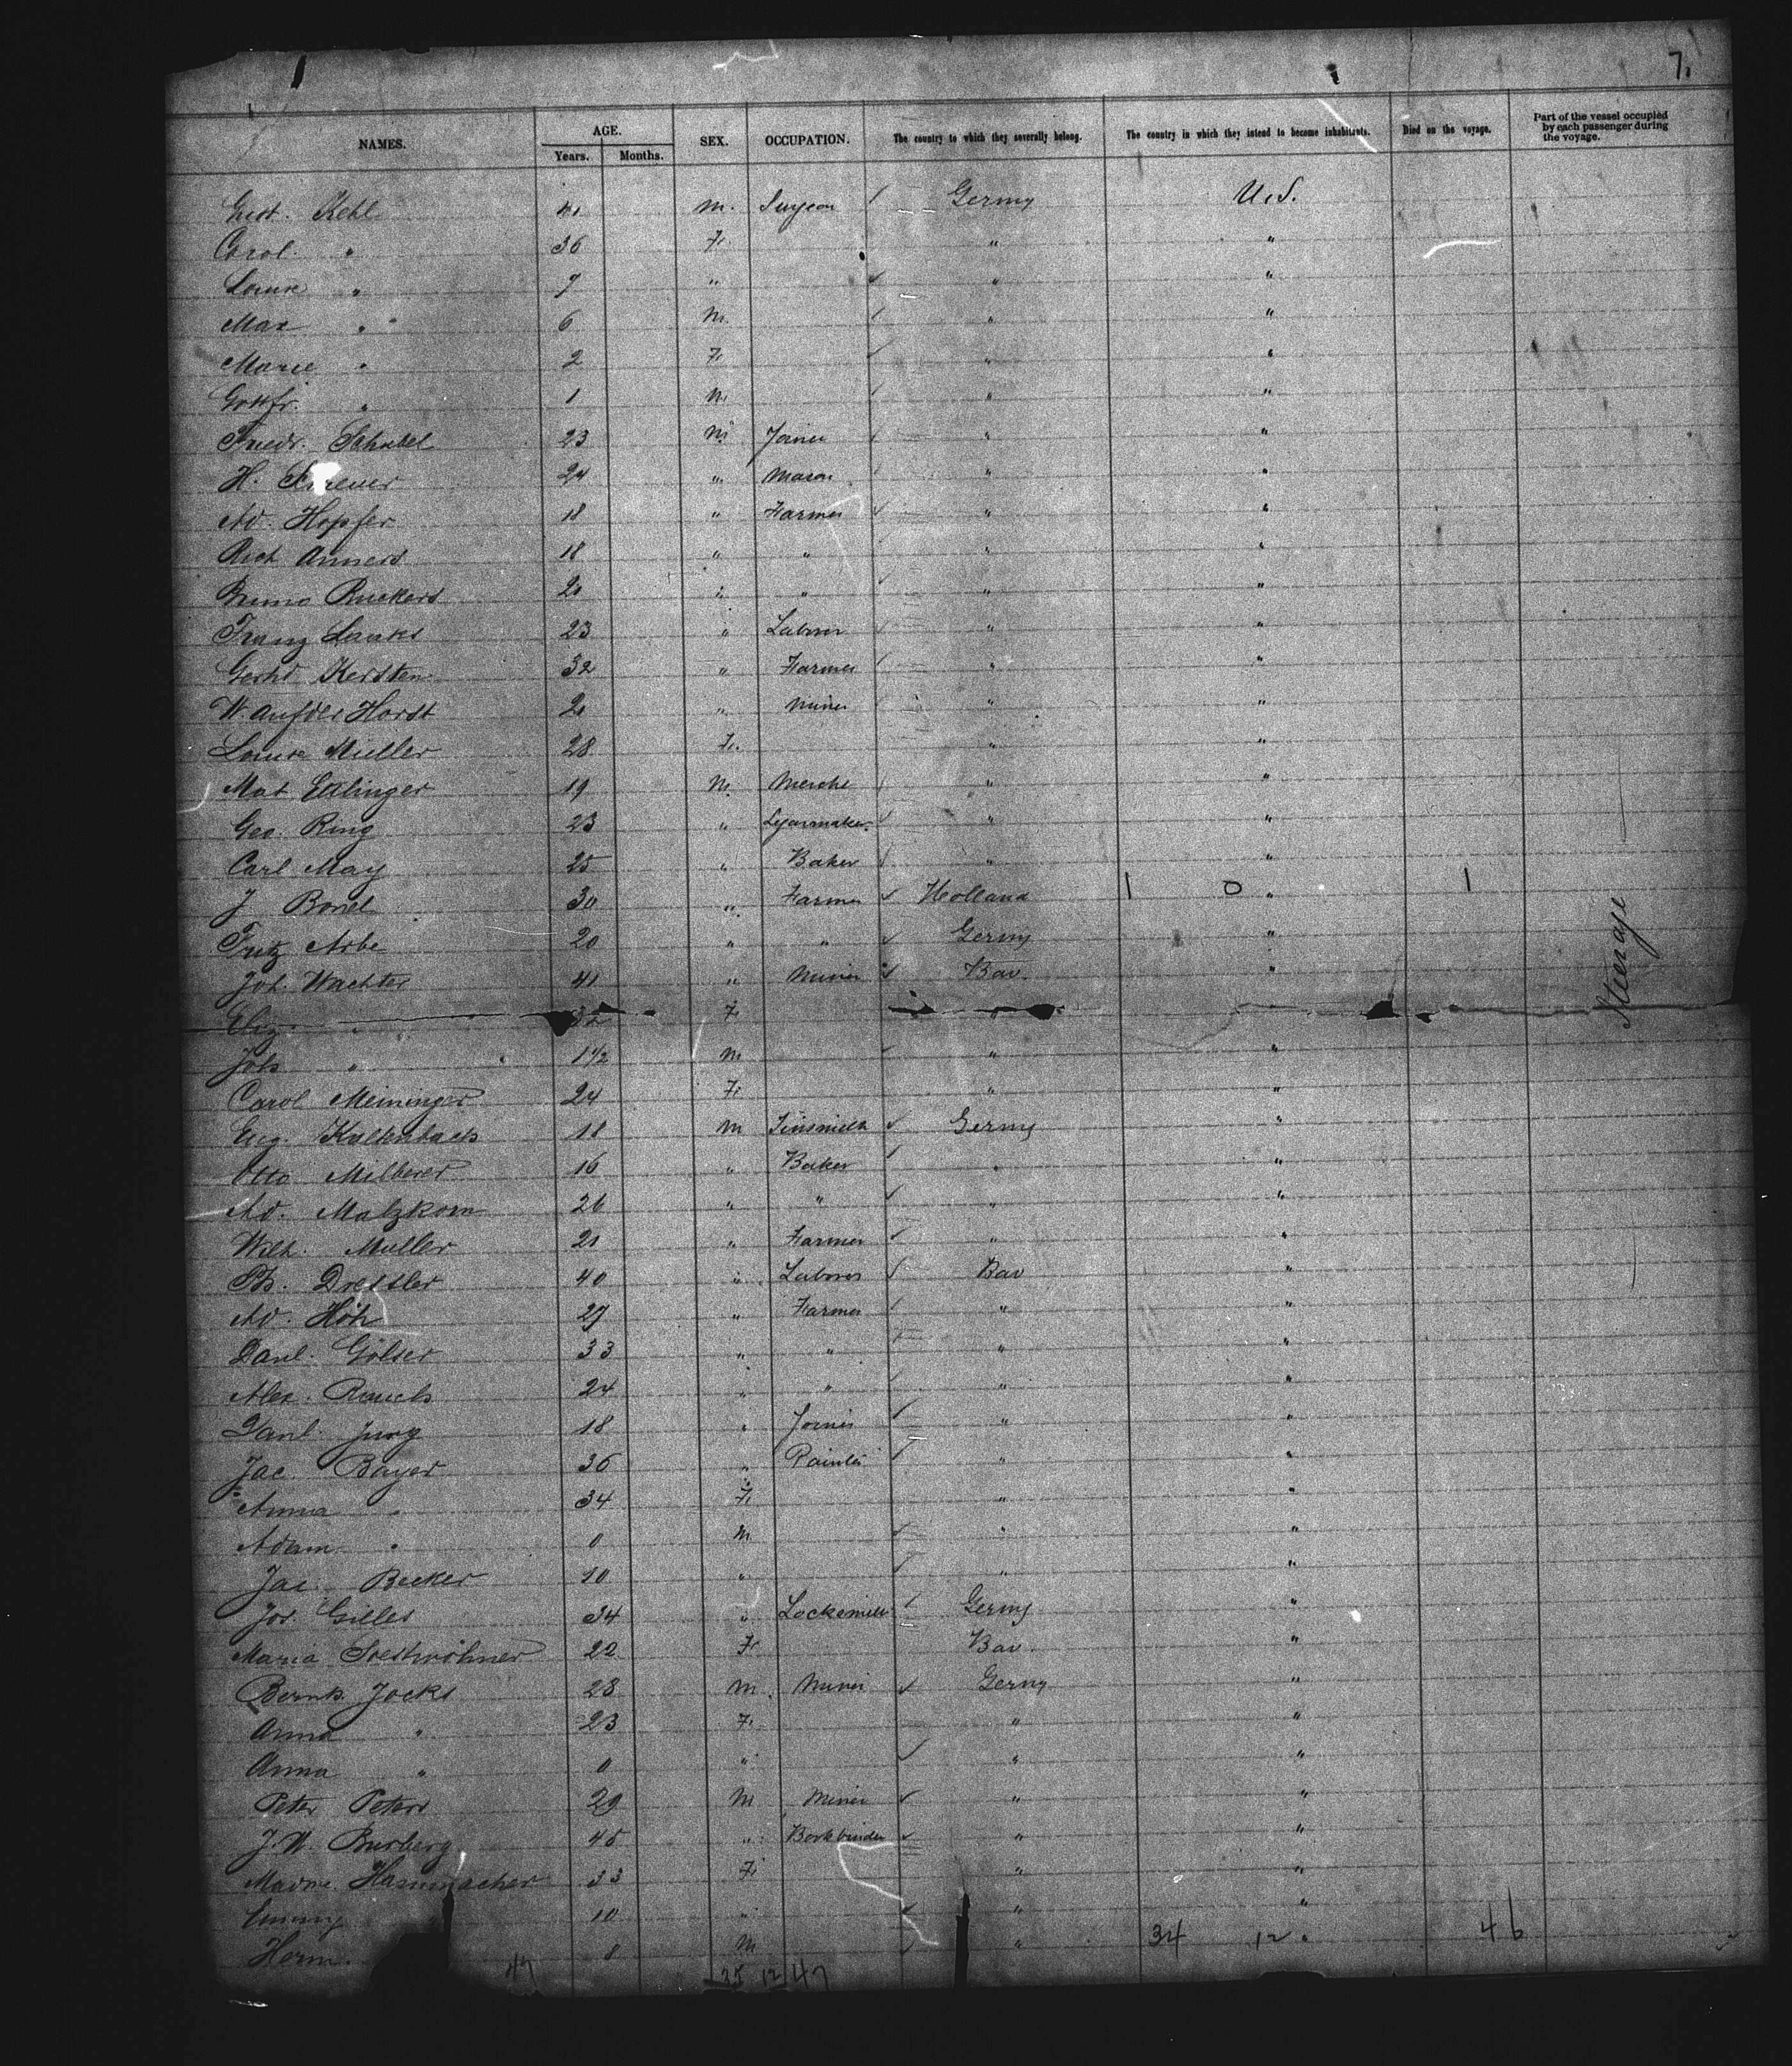 7.
NAMES. AGE. Years. Months. SEX. OCCUPATION. The country to which they severally belong. The country in which they intend to become inhabitants. Died on the voyage. Part of the vessel occupied by each passenger during the voyage.
Gust. Kehl 41 M. Surgeon Germy U.S.
Carol. " 36 F. " "
Laura " 9 " " "
Max " 6 M. " "
Marie " 2 F. " "
Gottfr. " 1 M. " "
Friedr. Schabel 23 M. Joiner " "
H. 24 " Mason " "
Ad. Hopfer 18 " Farmer " "
Rich Anners 18 " " " "
Bruno Ruckers 21 " " " "
Franz Lauks 23 " Laborer " "
Gerhd Kersten 32 " Farmer " "
W. Aufder Horst 21 " Miner " "
Laura Muller 28 F. " "
Mat Ettlinger 19 M. Mercht " "
Geo. Ring 23 " Sygarmaker " "
Carl May 25 " Baker " "
J Bonel 30 " Farmer Holland 1 0 " 1
Fritz Arbe 20 " " Germy "
Joh. Wachter 41 " Miner Bav. "
Eliz. " F. "
Joh " 1 1/2 M " "
Carol Meininger 24 F. " "
Eug. Kaltenbach 18 M Tinsmith Germy "
Otto Milberer 16 " Baker " "
Ad. Malzkorn 26 " " " "
Wilh. Muller 21 " Farmer " "
Ph. Dressler 40 " Laborer Bav "
Ad. Höh 29 " Farmer " "
Danl. Gölser 33 " " " "
Alex. Rauch 24 " " " "
Danl. Jung 18 " Joiner " "
Jac. Bayer 36 " Painter " "
Anna " 34 F. " "
Adam " 0 M " "
Jac. Becker 10 " " "
Jos. Gilles 34 " Locksmith Germy "
Maria 22 F. Bav. "
Bernh. Jocks 28 M. Miner Germy "
Anna " 23 F. " "
Anna " 0 " " "
Peter Peters 29 M Miner " "
J.W. Burberg 45 " Bookbinder " "
Madme. Hasenmacher 33 F. " "
Emmy 10 " " "
Herm. 8 M " 34 12 " 46
47 35 12 47
Steerage